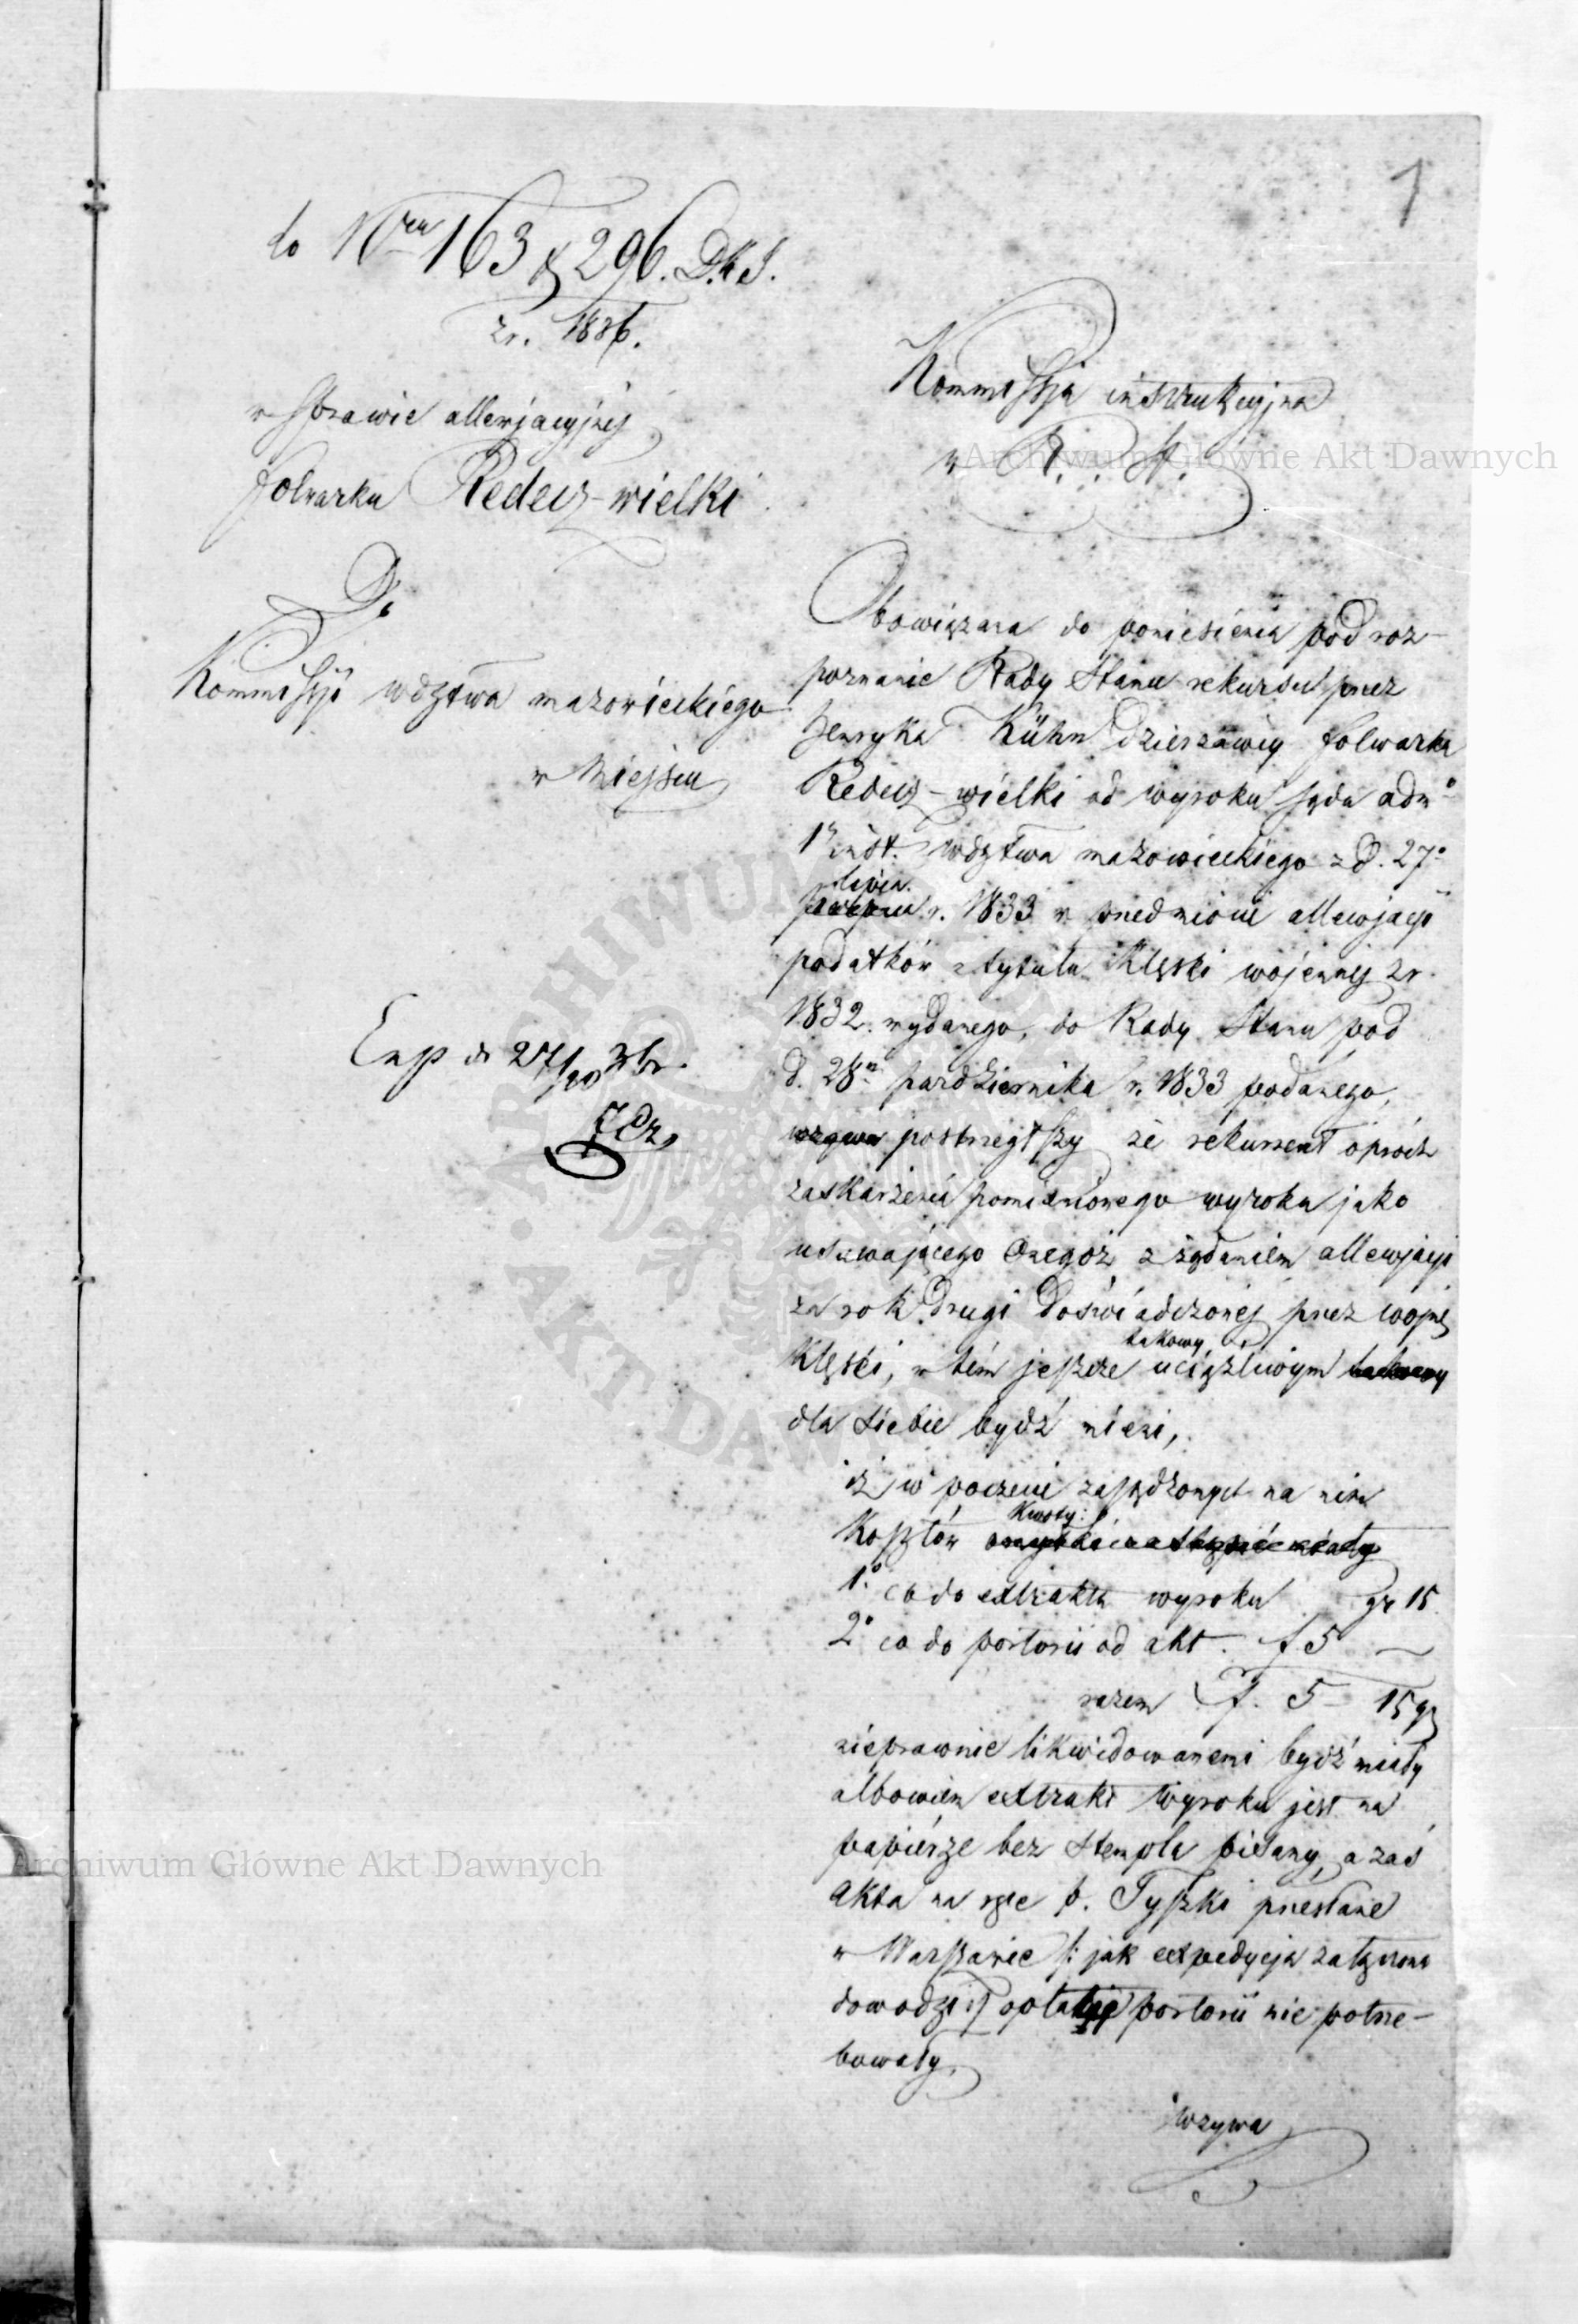 1
do Nru 163 & 296. D.K.S.
z r. 1836.
w sprawie allewjacyjnéj
folwarku Redecz-wielki
Do
Kommissyi wdztwa mazowieckiego
w Miejscu
Exp d 27/10 36 r.
Kommissja instrukcyjna
w R. S.
Obowiązana do poniesienia pod roz-
poznanie Rady Stanu rekursu przez
Henryka Kühn dzierżawcy folwarku
Redecz-wielki od wyroku sądu adm°
1ej inst. wdztwa mazowieckiego z d. 27°
lipca
r. 1833 w przedmiocie allewjacyi
podatków z tytułu klęski wojennej z r.
1832. wydanego, do Rady Stanu pod
d. 28m października r. 1833 podanego,
wzywa postrzegłszy że rekurrent oprócz
zaskarżenia pomienionego wyroku jako
usuwającego onegoż z żądaniem allewjacyi
za rok drugi doświadczonej przez wojnę
klęski, w tém jeszcze takowy uciążliwym takowy
dla siebie bydź mieni,
iż w poczecie zasądzonych na nim
kosztów kwoty:
1.° co do extraktu wyroku gr 15
2° co do portorii od akt. f. 5 —
razem f. 5 - 15 gr
nieprawnie likwidowanemi bydź miały
albowiem extrakt wyroku jest na
papiérze bez stempla pisany, a zaś
akta na ręce p. Tyszki przesłane
w Warszawie /: jak expedycja załączona
dowodzi :/ opłaty portorii nie potrze-
bowały,
wzywa
Archiwum Główne Akt Dawnych
Archiwum Główne Akt Dawnych
ARCHIWUM GŁÓWNE AKT DAWNYCH